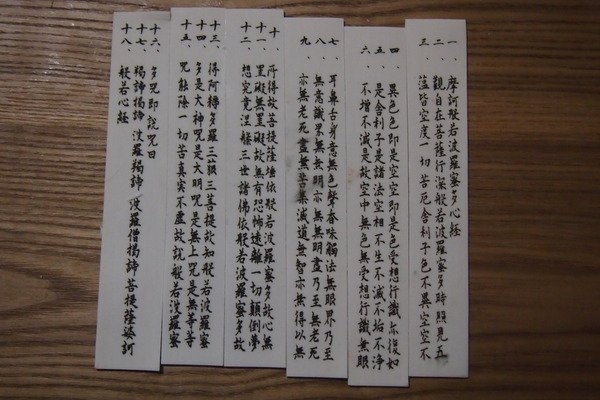 一、摩訶般若波羅蜜多心經
二、觀自在菩薩行深般若波羅蜜多時照見五
三、蘊皆空度一切苦厄舍利子色不異空空不
四、異色色即是空空即是色受想行識亦復如
五、是舍利子是諸法空相不生不滅不垢不淨
六、不增不減是故空中無色無受想行識無眼
七、耳鼻舌身意無色聲香味觸法無眼界乃至
八、無意識界無無明亦無無明盡乃至無老死
九、亦無老死盡無苦集滅道無智亦無得以無
十、所得故菩提薩埵依般若波羅蜜多故心無
十一、罣礙無罣礙故無有恐怖遠離一切顛倒夢
十二、想究竟涅槃三世諸佛依般若波羅蜜多故
十三、得阿耨多羅三藐三菩提故知般若波羅蜜
十四、多是大神咒是大明咒是無上咒是無等等
十五、咒能除一切苦真實不虛故說般若波羅蜜
十六、多咒即說咒曰
十七、揭諦揭諦 波羅揭諦 波羅僧揭諦 菩提薩婆訶
十八、般若心經